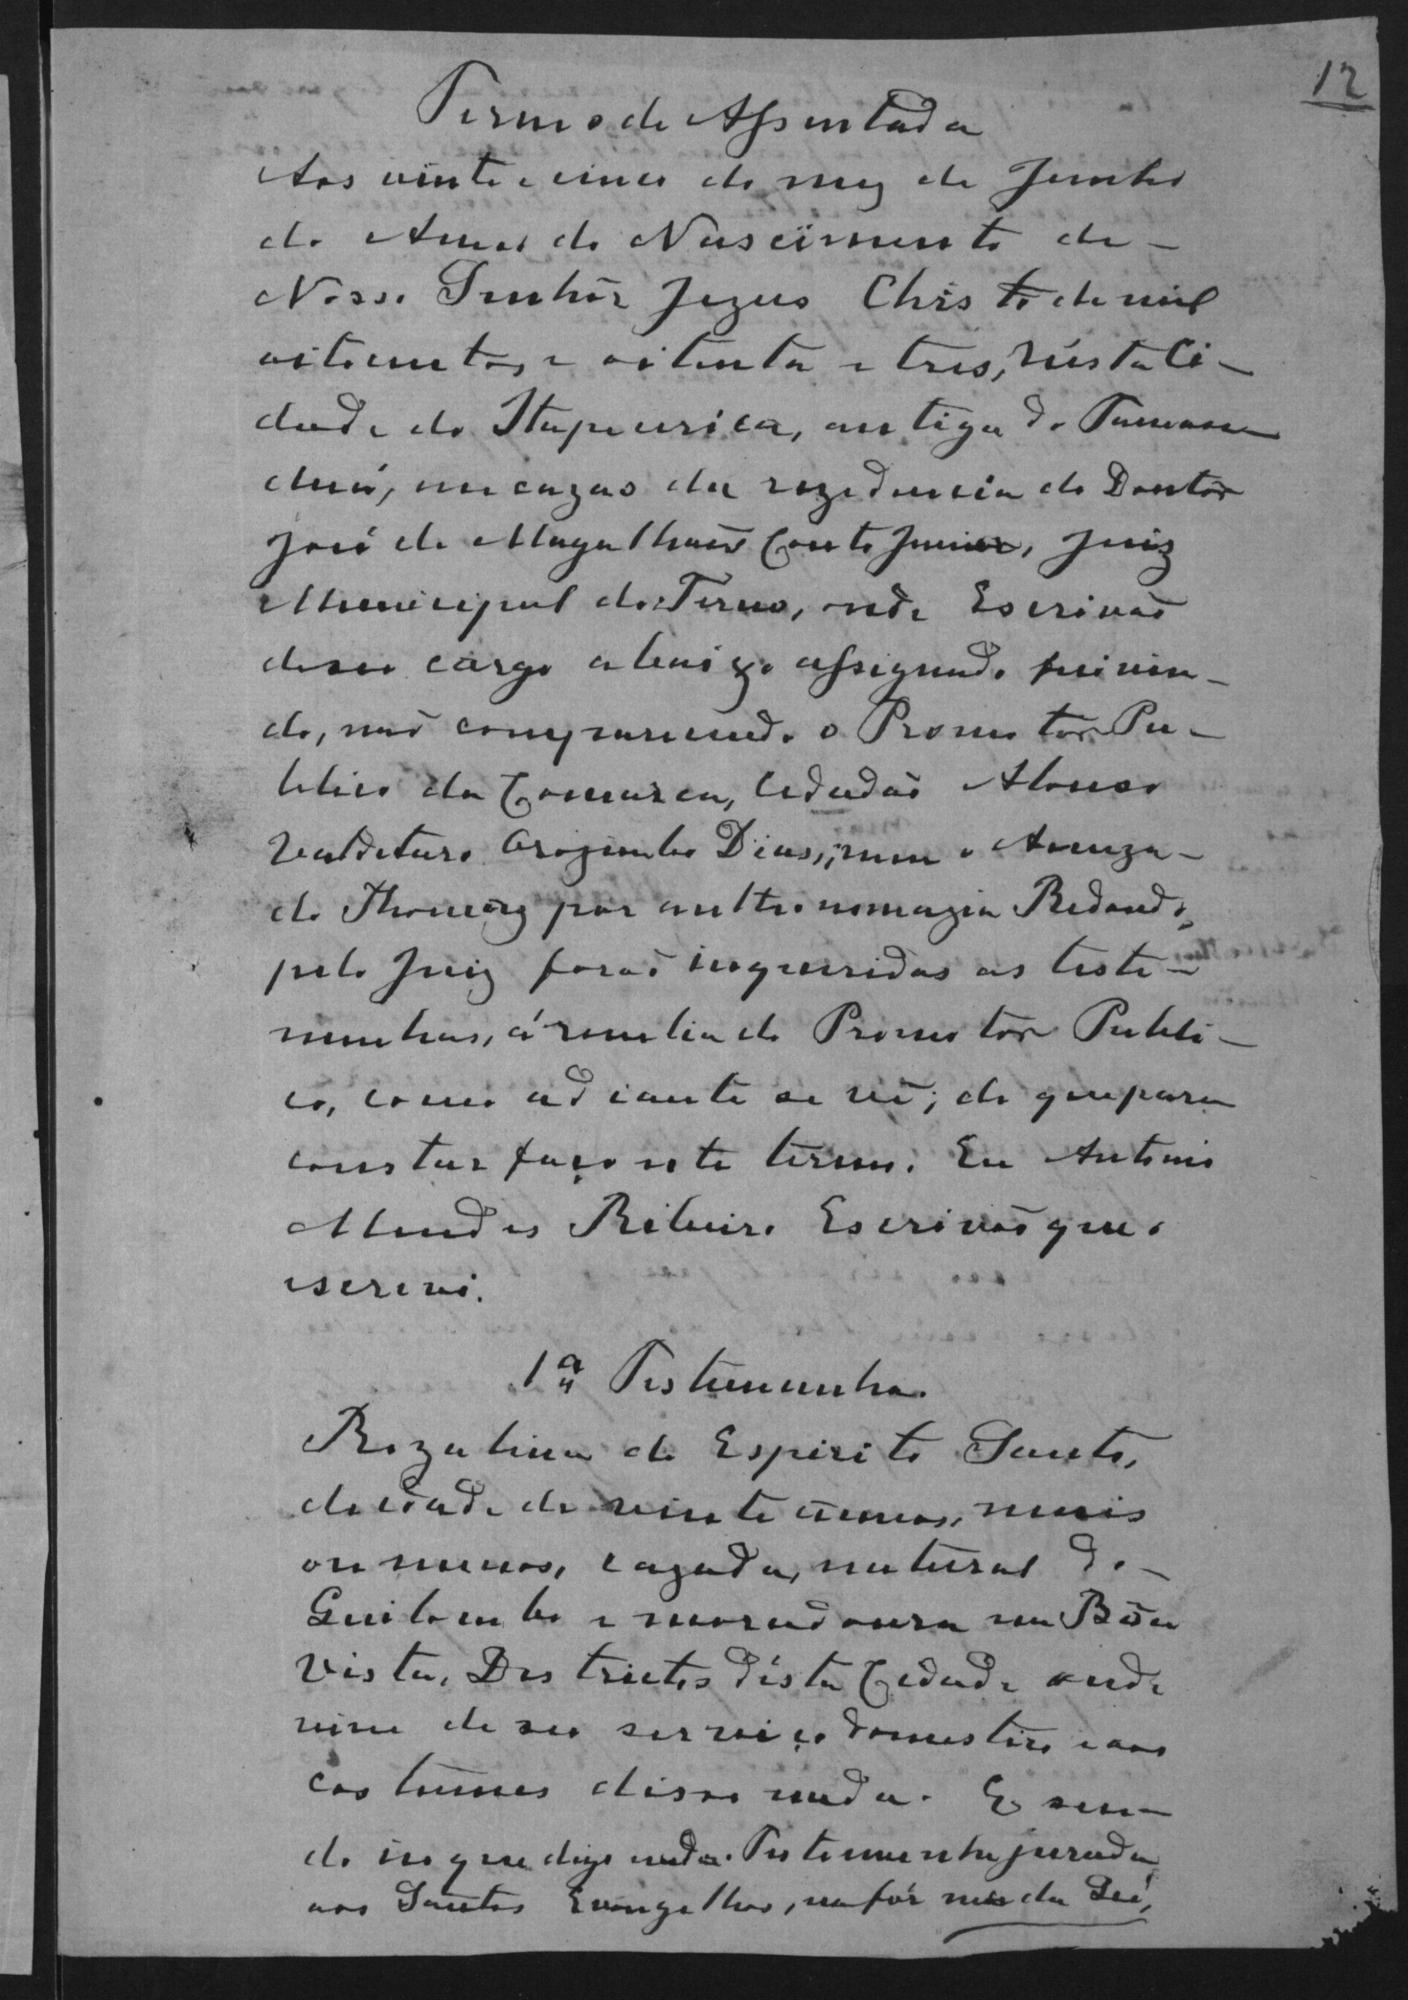 12
Termo de Assentada
Aos vinte e cinco do mez de Junho
do Anno do Nascimento de -
Nosso Senhor Jezus Christo de mil
oitocentos e oitenta e tres, nésta Ci-
dade do Itapecirica, antiga do Taman-
duá, em cazas da rezidencia do Doutor
José de Magalhães Couto Junior, Juiz
Municipal do Termo, onde Escrivão
de seo cargo abaixo assignado fui vin-
do, não comparecendo o Promotor Pu-
blico da Comarca, Cidadão Alonso
Dias, nem o Accuza-
do Thomaz por anthonomazia Redondo,
pelo Juiz forão inqueridas as teste-
munhas, á revelia do Promotor Publi-
co, como adiante se vê; do que para
constar faço este termo. Eu Antonio
Mendes Ribeiro Escrivão que o
escrevi.
1ª Testemunha.
Rozalina do Espirito Santo,
de idade de vinte annos, mais
ou menos, cazada, natural do -
Quilombo e moradoura na Bôa
Vista, Destricto désta Cidade onde
vive de seo serviço domestico e aos
costumes disse nada. E sen-
do in que digo nada. Testemunha jurada
aos Santos Evangelhos, na fórma da Lei,